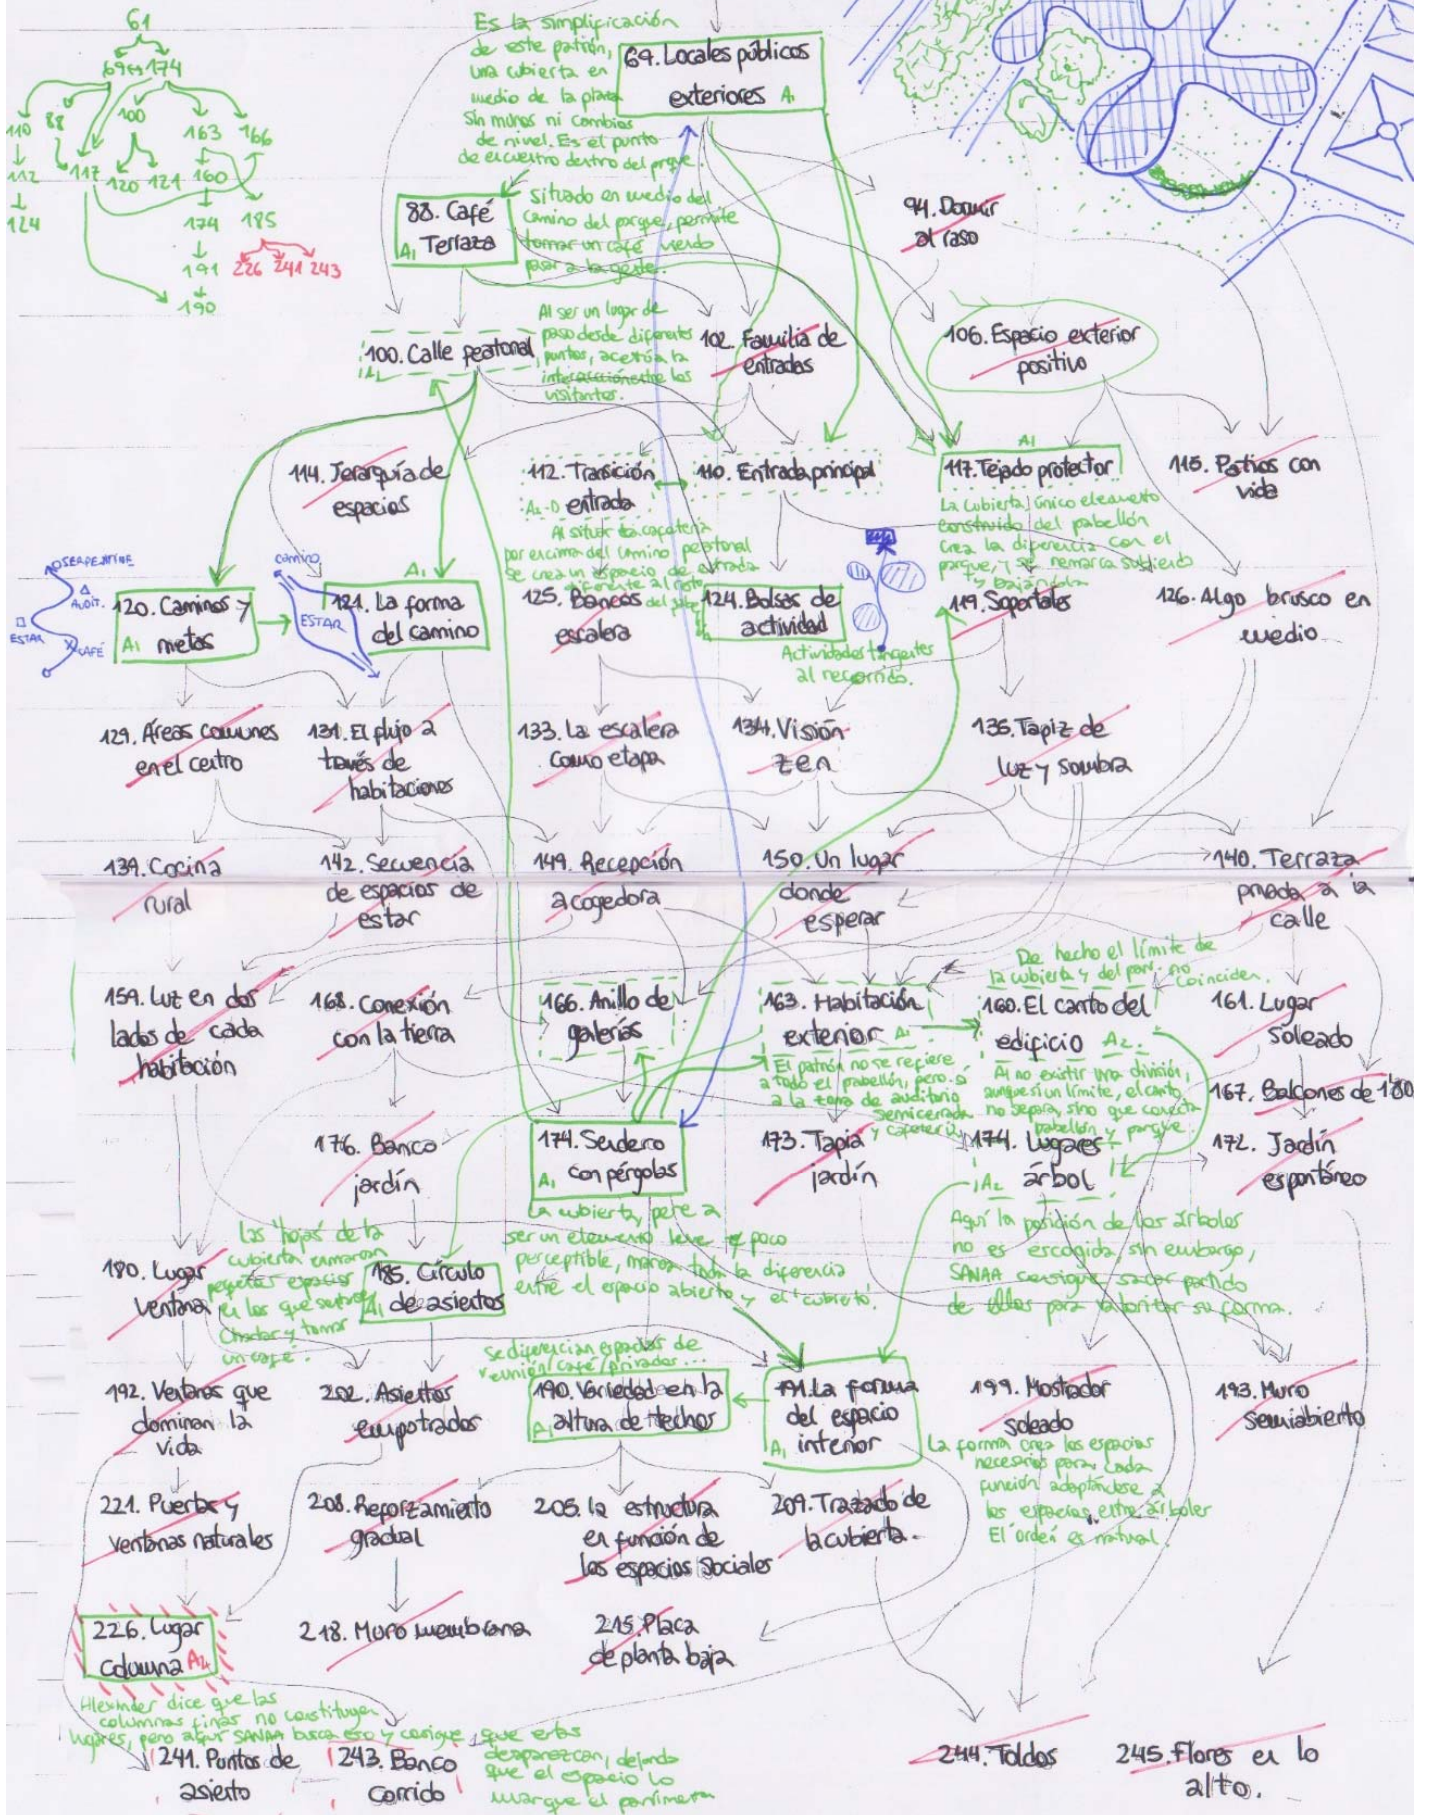 61
69↔174
110 88 100 163 166
112 117 120 121 160
124 174 185
191 226 241 243
190
Es la simplificación
de este patrón,
una cubierta en
medio de la plaza
sin muros ni cambios
de nivel. Es el punto
de encuentro dentro del parque.
69. Locales públicos
exteriores A1
88. Café
Terraza
A1
situado en medio del
camino del parque, permite
tomar un café viendo
pasar a la gente.
94. Dormir
al raso
100. Calle peatonal
Al ser un lugar de
paso desde diferentes
puntos,
interacción entre los
visitantes.
102. Familia de
entradas
106. Espacio exterior
positivo
114. Jerarquía de
espacios
112. Transición
entrada
110. Entrada principal
A1
117. Tejado protector
115. Patios con
vida
Al situar la cafetería
por encima del camino peatonal
se crea un espacio de entrada
diferente al resto
La cubierta, único elemento
construido del pabellón
crea la diferencia con el
parque, y se remarca subiendo
y bajándola
SERPENTINE
AUDIT.
ESTAR
CAFÉ
camino
ESTAR
120. Caminos y
metas
A1
A1
121. La forma
del camino
125. Bancos
escalera
124. Bolsas de
actividad
119. Soportales
126. Algo brusco en
medio
Actividades tangentes
al recorrido.
129. Áreas comunes
en el centro
131. El flujo a
través de
habitaciones
133. La escalera
como etapa
134. Visión
zen
135. Tapiz de
luz y sombra
139. Cocina
rural
142. Secuencia
de espacios de
estar
149. Recepción
acogedora
150. Un lugar
donde
esperar
140. Terraza
privada a la
calle
De hecho el límite de
la cubierta y del pav. no
coinciden.
159. Luz en dos
lados de cada
habitación
168. Conexión
con la tierra
166. Anillo de
galerías
163. Habitación
exterior A1
160. El canto del
edificio A2
161. Lugar
soleado
El patrón no se refiere
a todo el pabellón, pero sí
a la zona de auditorio
semicerrada
y cafetería
Al no existir una división,
aunque sí un límite, el canto
no separa, sino que conecta
pabellón y parque.
167. Balcones de 1'80
176. Banco
jardín
174. Sendero
A1 con pérgolas
173. Tapia
jardín
174. Lugares
A2 árbol
172. Jardín
espontáneo
La cubierta, pese a
ser un elemento leve y poco
perceptible, marca toda la diferencia
entre el espacio abierto y el "cubierto".
Aquí la posición de los árboles
no es escogida, sin embargo,
SANAA consigue sacar partido
de ellos para valorizar su forma.
180. Lugar
ventana
Las "hojas" de la
cubierta enmarcan
pequeños espacios
en los que sentarse
charlar y tomar
un café.
185. Círculo
A1 de asientos
Se diferencian espacios de
reunión/café/privados...
192. Ventanas que
dominan la
vida
202. Asientos
empotrados
190. Variedad en la
A1 altura de techos
191. La forma
del espacio
A1 interior
199. Mostrador
soleado
193. Muro
semiabierto
La forma crea los espacios
necesarios para cada
función adaptándose a
los espacios entre árboles
El orden es natural.
221. Puertas y
ventanas naturales
208. Reforzamiento
gradual
205. La estructura
en función de
los espacios sociales
209. Trazado de
la cubierta.
226. Lugar
columna A2
218. Muro membrana
215. Placa
de planta baja
Alexander dice que las
columnas finas no constituyen
lugares, pero aquí SANAA busca eso y consigue que estas
desaparezcan, dejando
que el espacio lo
marque el pavimento
241. Puntos de
asiento
243. Banco
corrido
244. Toldos
245. Flores en lo
alto.